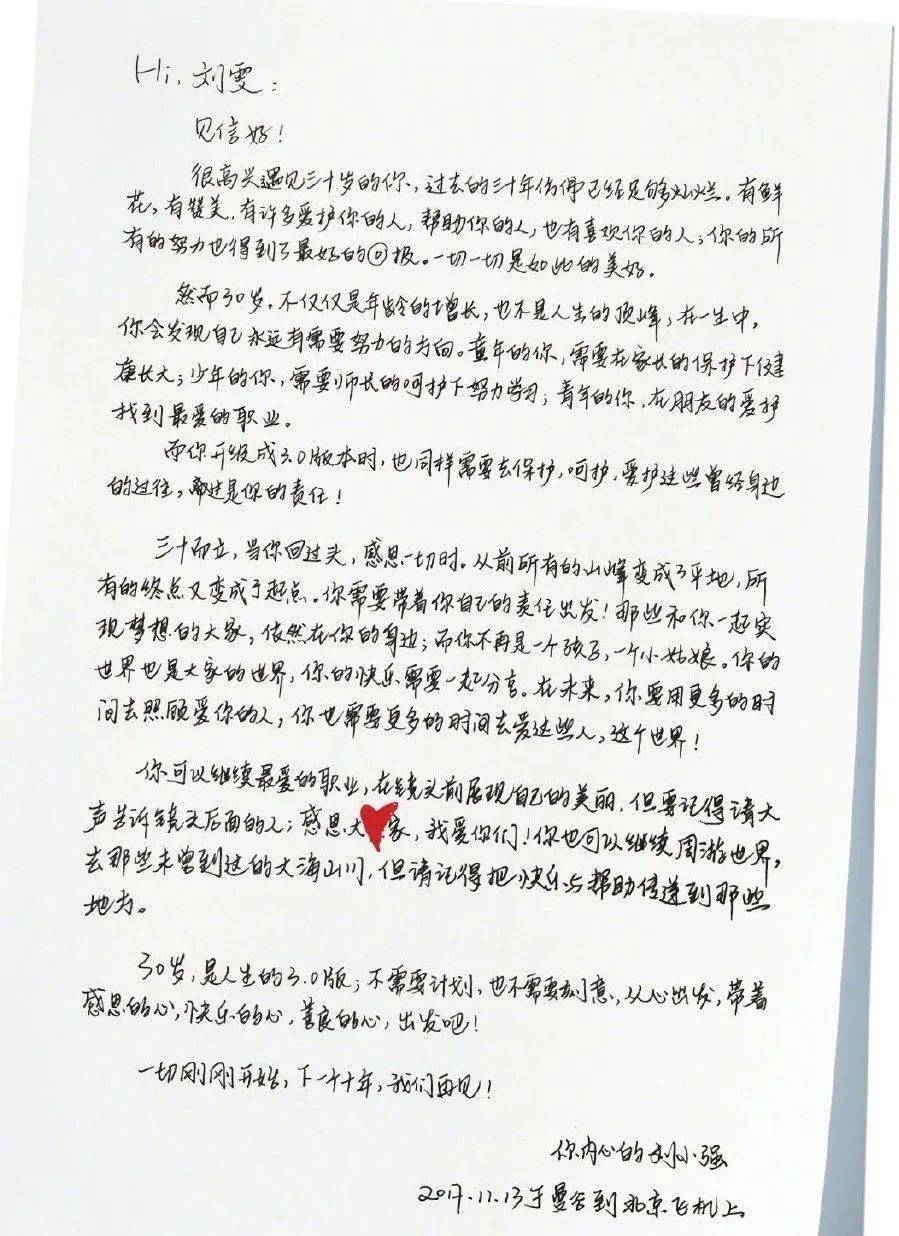 Hi, 刘雯:
见信好!
很高兴遇见三十岁的你,过去的三十年仿佛已经足够灿烂。有鲜
花,有赞美,有许多爱护你的人,帮助你的人,也有喜欢你的人;你的所
有的努力也得到了最好的回报。一切一切是如此的美好。
然而30岁,不仅仅是年龄的增长,也不是人生的顶峰,在一生中,
你会发现自己永远有需要努力的方向。童年的你,需要在家长的保护下健
康长大;少年的你,需要师长的呵护下努力学习;青年的你,在朋友的爱护
找到最爱的职业。
而你升级成3.0版本时,也同样需要去保护,呵护,爱护这些曾经身边
的过往,这是你的责任!
三十而立,当你回过头,感恩一切时。从前所有的山峰变成了平地,所
有的终点又变成了起点。你需要带着你自己的责任出发!那些和你一起实
现梦想的大家,依然在你的身边;而你不再是一个孩子,一个小姑娘。你的
世界也是大家的世界,你的快乐需要一起分享。在未来,你要用更多的时
间去照顾爱你的人,你也需要更多的时间去爱这些人,这个世界!
你可以继续最爱的职业,在镜头前展现自己的美丽,但要记得请大
声告诉镜头后面的人;感恩大家,我爱你们!你也可以继续周游世界,
去那些未曾到达的大海山川,但请记得把快乐与帮助传递到那些
地方。
30岁,是人生的3.0版;不需要计划,也不需要刻意,从心出发,带着
感恩的心,快乐的心,善良的心,出发吧!
一切刚刚开始,下一个十年,我们再见!
你内心的刘小强
2017.11.13于曼谷到北京飞机上